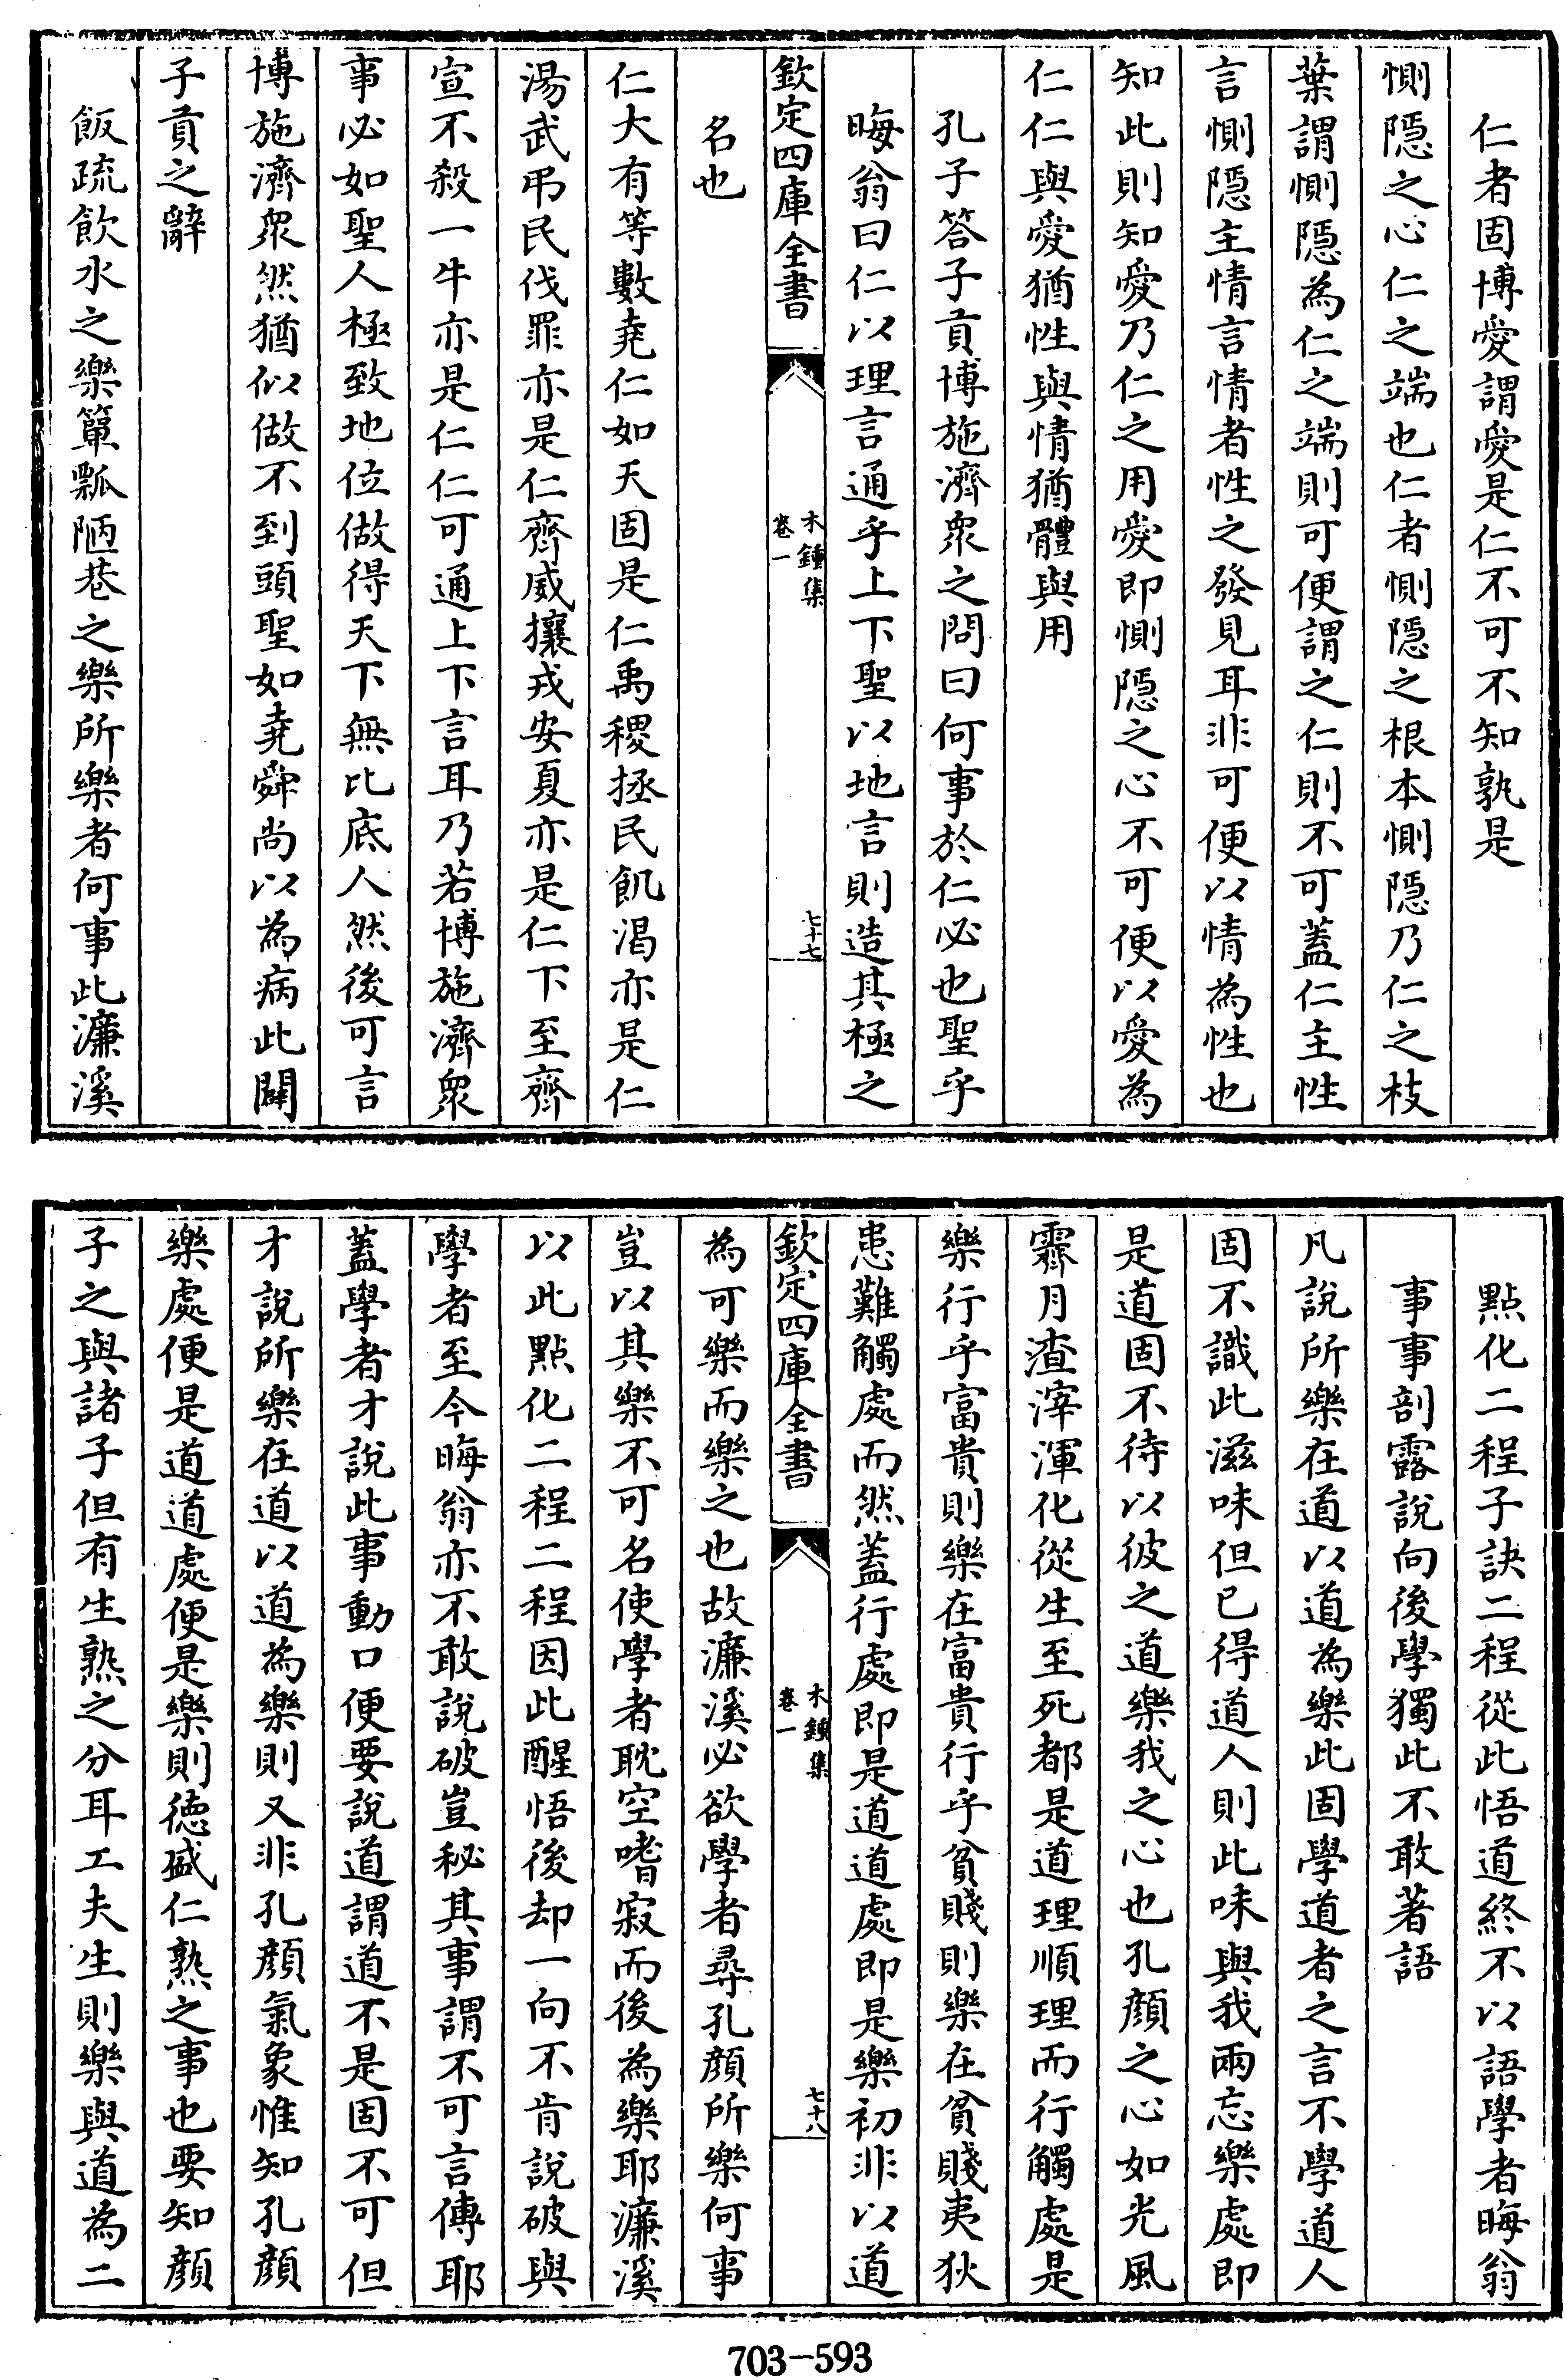 仁者固博愛謂愛是仁不可不知孰是
惻隠之心仁之端也仁者惻隠之根本惻隠乃仁之枝
葉謂惻隠為仁之端則可便謂之仁則不可蓋仁主性
言惻隠主情言情者性之發見耳非可便以情為性也
知此則知愛乃仁之用愛即惻隠之心不可便以愛為
仁仁與愛猶性與情猶體與用
孔子答子貢博施濟衆之問曰何事於仁必也聖乎
晦翁曰仁以理言通乎上下聖以地言則造其極之
欽定四庫全書
木鍾集
卷一
七十七
名也
仁大有等數堯仁如天固是仁禹稷拯民飢渴亦是仁
湯武弔民伐罪亦是仁齊威攘戎安夏亦是仁下至齊
宣不殺一牛亦是仁仁可通上下言耳乃若博施濟衆
事必如聖人極致地位做得天下無比底人然後可言
博施濟衆然猶似做不到頭聖如堯舜尚以為病此闢
子貢之辭
飯疏飲水之樂簞瓢陋巷之樂所樂者何事此濂溪
點化二程子訣二程從此悟道終不以語學者晦翁
事事剖露說向後學獨此不敢著語
凡說所樂在道以道為樂此固學道者之言不學道人
固不識此滋味但已得道人則此味與我兩忘樂處即
是道固不待以彼之道樂我之心也孔顔之心如光風
霽月渣滓渾化從生至死都是道理順理而行觸處是
樂行乎富貴則樂在富貴行乎貧賤則樂在貧賤夷狄
患難觸處而然蓋行處即是道道處即是樂初非以道
欽定四庫全書
木鍾集
卷一
七十八
為可樂而樂之也故濂溪必欲學者尋孔顔所樂何事
豈以其樂不可名使學者耽空嗜寂而後為樂耶濂溪
以此點化二程二程因此醒悟後却一向不肯說破與
學者至今晦翁亦不敢說破豈秘其事謂不可言傳耶
蓋學者才說此事動口便要說道謂道不是固不可但
才說所樂在道以道為樂則又非孔顔氣象惟知孔顔
樂處便是道道處便是樂則徳盛仁熟之事也要知顔
子之與諸子但有生熟之分耳工夫生則樂與道為二
703-593